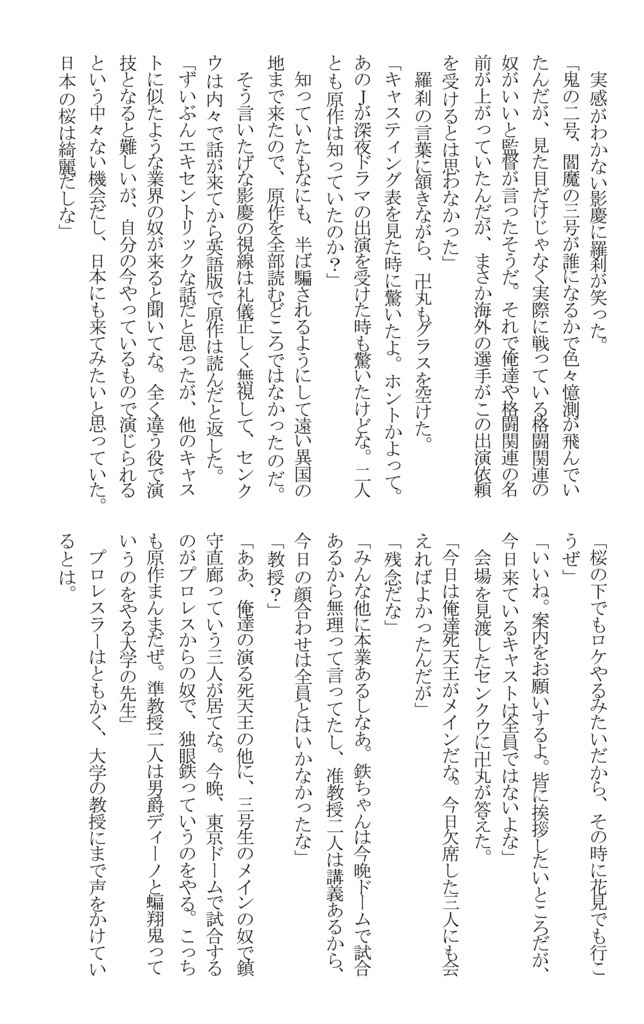 実感がわかない影慶に羅刹が笑った。
「鬼の二号、閻魔の三号が誰になるかで色々憶測が飛んでい
たんだが、見た目だけじゃなく実際に戦っている格闘関連の
奴がいいと監督が言ったそうだ。それで俺達や格闘関連の名
前が上がっていたんだが、まさか海外の選手がこの出演依頼
を受けるとは思わなかった」
　羅刹の言葉に頷きながら、卍丸もグラスを空けた。
「キャスティング表を見た時に驚いたよ。ホントかよって。
あのＪが深夜ドラマの出演を受けた時も驚いたけどな。二人
とも原作は知っていたのか？」
　知っていたもなにも、半ば騙されるようにして遠い異国の
地まで来たので、原作を全部読むどころではなかったのだ。
　そう言いたげな影慶の視線は礼儀正しく無視して、センク
ウは内々で話が来てから英語版で原作は読んだと返した。
「ずいぶんエキセントリックな話だと思ったが、他のキャス
トに似たような業界の奴が来ると聞いてな。全く違う役で演
技となると難しいが、自分の今やっているもので演じられる
という中々ない機会だし、日本にも来てみたいと思っていた。
日本の桜は綺麗だしな」
「桜の下でもロケやるみたいだから、その時に花見でも行こ
うぜ」
「いいね。案内をお願いするよ。皆に挨拶したいところだが、
今日来ているキャストは全員ではないよな」
　会場を見渡したセンクウに卍丸が答えた。
「今日は俺達死天王がメインだな。今日欠席した三人にも会
えればよかったんだが」
「残念だな」
「みんな他に本業あるしなあ。鉄ちゃんは今晩ドームで試合
あるから無理って言ってたし、准教授二人は講義あるから、
今日の顔合わせは全員とはいかなかったな」
「教授？」
「ああ、俺達の演る死天王の他に、三号生のメインの奴で鎮
守直廊っていう三人が居てな。今晩、東京ドームで試合する
のがプロレスからの奴で、独眼鉄っていうのをやる。こっち
も原作まんまだぜ。準教授二人は男爵ディーノと蝙翔鬼って
いうのをやる大学の先生」
　プロレスラーはともかく、大学の教授にまで声をかけてい
るとは。